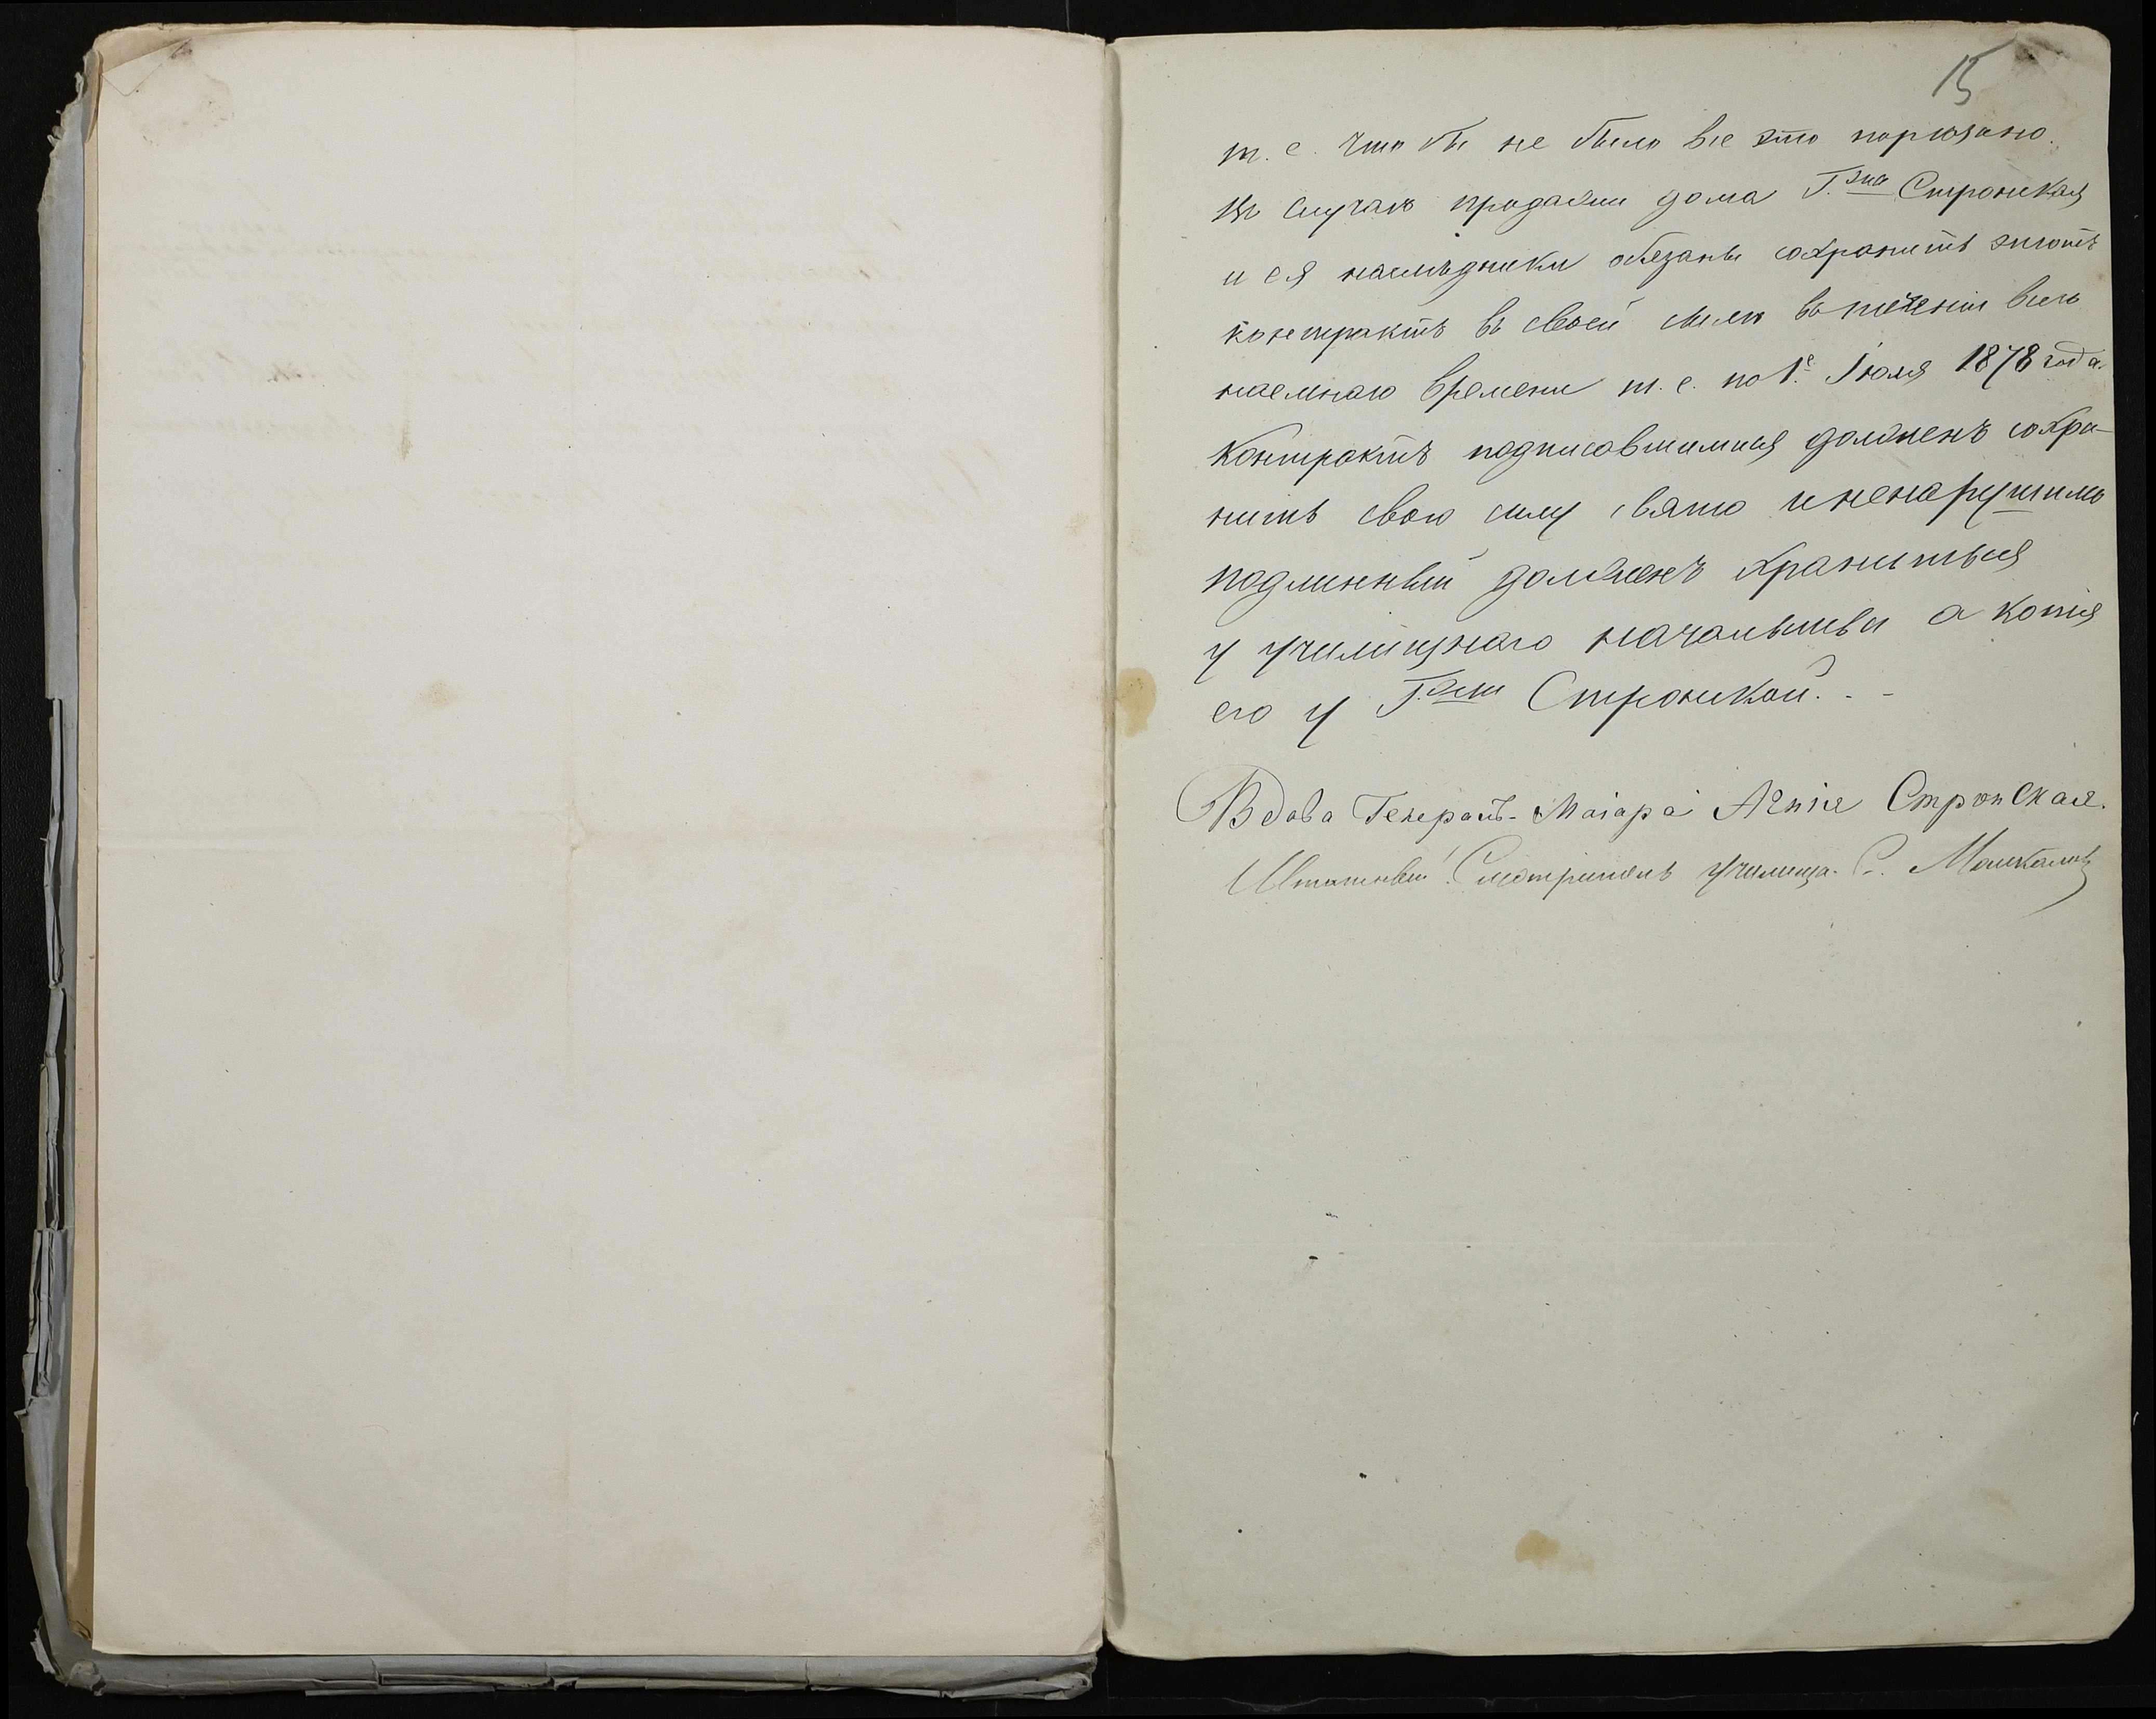 15
т. е. что бы не было все это порѣзано.
Въ случаѣ продажи дома Г.жа Стронская
и ея наслѣдники обязаны сохранить этотъ
контрактъ въ своей силѣ въ теченіи всего
наемнаго времени т. е. по 1е Іюля 1878 года.
Контрактъ подписавшимися долженъ сохра-
нить свою силу свято и ненарушимо
подлинный долженъ храниться
у училищнаго начальства а копія
его у Г.жи Стронской. - -
Вдова Генералъ-Маіора Стронская.
Штатный Смотритель училища С.